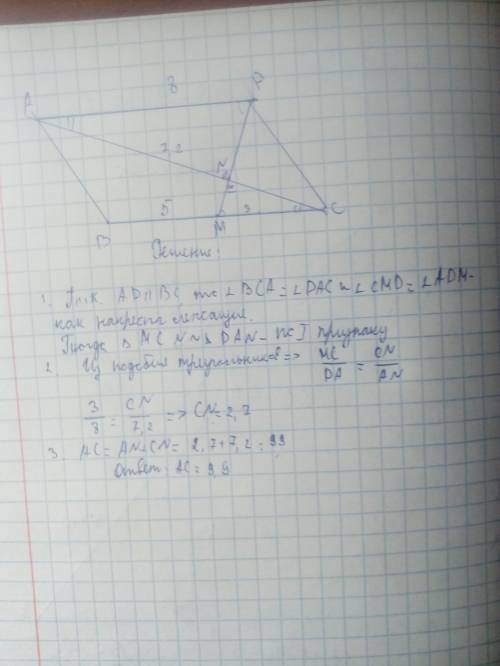 A
8
D
7,2
N
B
5
M
3
C
Решение:
1. Т.к AD || BC то ∠BCA = ∠DAC и ∠CMD = ∠ADM -
как накрест лежащие.
Тогда △ MCN ~ △ DAN - по I признаку
2. Из подобия треугольников => MC/DA = CN/AN
3/8 = CN/7,2 => CN = 2,7
3. AC = AN + CN = 2,7 + 7,2 = 99
Ответ: AC = 9,9